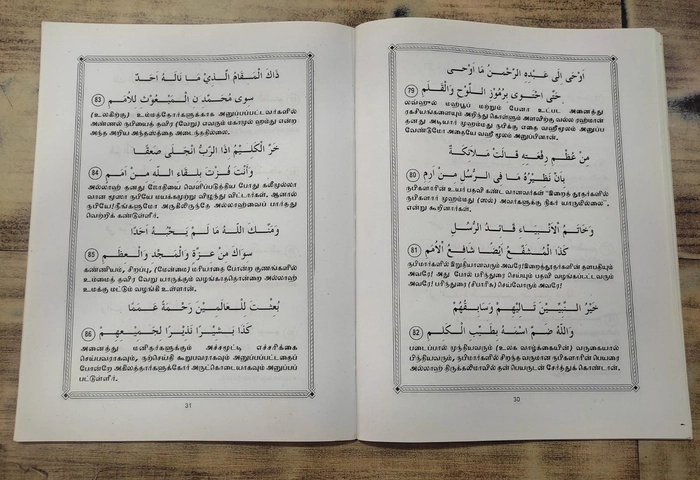 اَوْحٰى اِلٰى عَبْدِهِ الرَّحْمٰنُ مَا اَوْحٰى
حَتّٰى احْتَوٰى بِرُمُوْزِ اللَّوْحِ وَالْقَلَمِ
79
லவ்ஹுல் மஹ்பூழ் மற்றும் பேனா உட்பட அனைத்து
ரகசியங்களையும் அறிந்து கொள்ளும் அளவிற்கு வல்ல ரஹ்மான்
தனது அடியார் முஹம்மது நபிக்கு எதை வஹீமூலம் அனுப்ப
வேண்டுமோ அதையே வஹீ மூலம் அனுப்பினான்.
مِنْ عُظْمِ رِفْعَتِهِ قَالَتْ مَلَائِكَةٌ
بِاَنْ نَظِيْرُهُ مَا فِى الرُّسْلِ مِنْ اِرَمِ
80
நபிகளாரின் உயர் பதவி கண்ட வானவர்கள் "இறைத் தூதர்களில்
நபிகளார் முஹம்மது (ஸல்) அவர்களுக்கு நிகர் யாருமில்லை".
என்று கூறினார்கள்.
وَخَاتَمُ الْاَنْبِيَاءِ قَائِدُ الرُّسُلِ
كَذَا الْمُشَفَّعُ اَيْضًا شَافِعُ الْاُمَمِ
81
நபிமார்களில் இறுதியானவரும் அவரே! இறைத்தூதர்களின் தளபதியும்
அவரே! அது போல் பரிந்துரை செய்யும் பதவி வழங்கப்பட்டவரும்
அவரே! பரிந்துரை (சிபாரிசு) செய்வோரும் அவரே!
خَيْرُ النَّبِيِّيْنَ تَالِيْهِمْ وَسَابِقُهُمْ
وَاللّٰهُ ضَمَّ اسْمَهُ بِطَيِّبِ الْكَلِمِ
82
படைப்பால் முந்தியவரும் (உலக வாழ்க்கையின்) வருகையால்
பிந்தியவரும், நபிமார்களில் சிறந்த வருமான நபிகளாரின் பெயரை
அல்லாஹ் திருக்கலிமாவில் தன் பெயருடன் சேர்த்துக் கொண்டான்.
30
ذَاكَ الْمَقَامُ الَّذِيْ مَا نَالَهُ اَحَدٌ
سِوٰى مُحَمَّدِ نِ الْمَبْعُوْثِ لِلْاُمَمِ
83
(உலகிற்கு) உம்மத்தோர்களுக்காக அனுப்பப்பட்டவர்களில்
அண்ணல் நபியைத் தவிர (வேறு) எவரும் மகாமுல் ஹம்து என்ற
அந்த அரிய அந்தஸ்த்தை அடைந்ததில்லை.
خَرَّ الْكَلِيْمُ اِذَا الرَّبُّ انْجَلٰى صَعِقًا
وَاَنْتَ فُزْتَ بِلِقَاءِ اللّٰهِ مِنْ اَمَمِ
84
அல்லாஹ் தனது ஜோதியை வெளிப்படுத்திய போது கலீமுல்லா
வான மூஸா நபியே மயக்கமுற்று விழுந்து விட்டார்கள். ஆனால்
நபியே! நீங்களுமோ அருகிலிருந்தே அல்லாஹ்வைப் பார்த்து
வெற்றிக் கண்டுள்ளீர்.
وَمَنَّكَ اللّٰهُ مَا لَمْ يَحْبُهُ اَحَدًا
سِوَاكَ مِنْ عِزَّةٍ وَالْمَجْدِ وَالْعِظَمِ
85
கண்ணியம், சிறப்பு, (மேன்மை) மரியாதை போன்ற குணங்களில்
உம்மைத் தவிர வேறு யாருக்கும் வழங்காததொன்றை அல்லாஹ்
உமக்கு மட்டும் வழங்கி உள்ளான்.
بُعِثْتَ لِلْعَالَمِيْنَ رَحْمَةً عَمَمًا
كَذَا بَشِيْرًا نَذِيْرًا لِجَمِيْعِهِمْ
86
அனைத்து மனிதர்களுக்கும் அச்சமூட்டி எச்சரிக்கை
செய்பவராகவும், நற்செய்தி கூறுபவராகவும் அனுப்பப்பட்டதைப்
போன்றே அகிலத்தார்களுக்கோர் அருட்கொடையாகவும் அனுப்பப்
பட்டுள்ளீர்.
31